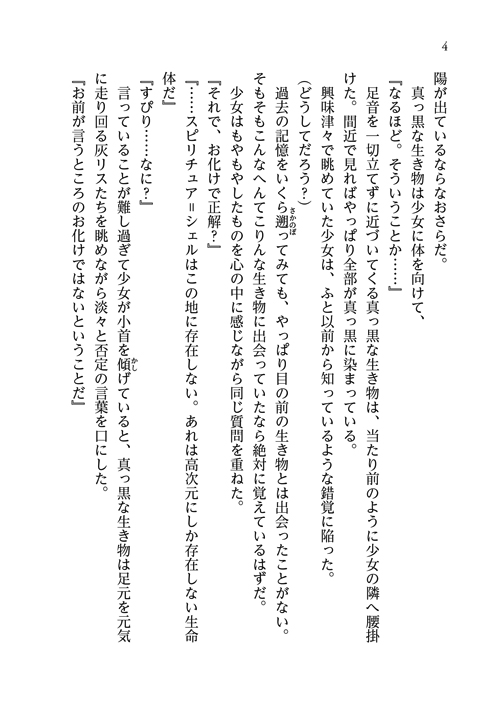 4
陽が出ているならなおさらだ。
真っ黒な生き物は少女に体を向けて、
『なるほど。そういうことか……』
足音を一切立てずに近づいてくる真っ黒な生き物は、当たり前のように少女の隣へ腰掛
けた。間近で見ればやっぱり全部が真っ黒に染まっている。
興味津々で眺めていた少女は、ふと以前から知っているような錯覚に陥った。
(どうしてだろう?)
過去の記憶をいくら遡さかのぼってみても、やっぱり目の前の生き物とは出会ったことがない。
そもそもこんなへんてこりんな生き物に出会っていたなら絶対に覚えているはずだ。
少女はもやもやしたものを心の中に感じながら同じ質問を重ねた。
『それで、お化けで正解?』
『……スピリチュア＝シェルはこの地に存在しない。あれは高次元にしか存在しない生命
体だ』
『すぴり……なに?』
言っていることが難し過ぎて少女が小首を傾かしげていると、真っ黒な生き物は足元を元気
に走り回る灰リスたちを眺めながら淡々と否定の言葉を口にした。
『お前が言うところのお化けではないということだ』